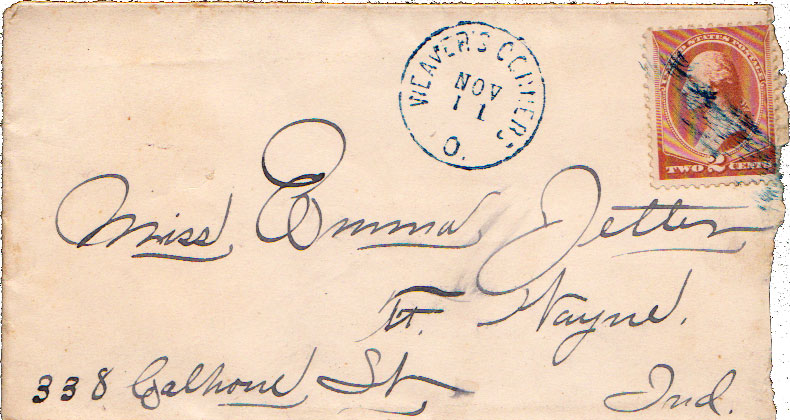 WEAVER'S CORNERS
NOV
11
O.
UNITED STATES POSTAGE
TWO 2 CENTS
Miss Emma Jetter
Ft. Wayne.
338 Calhoun St
Ind.